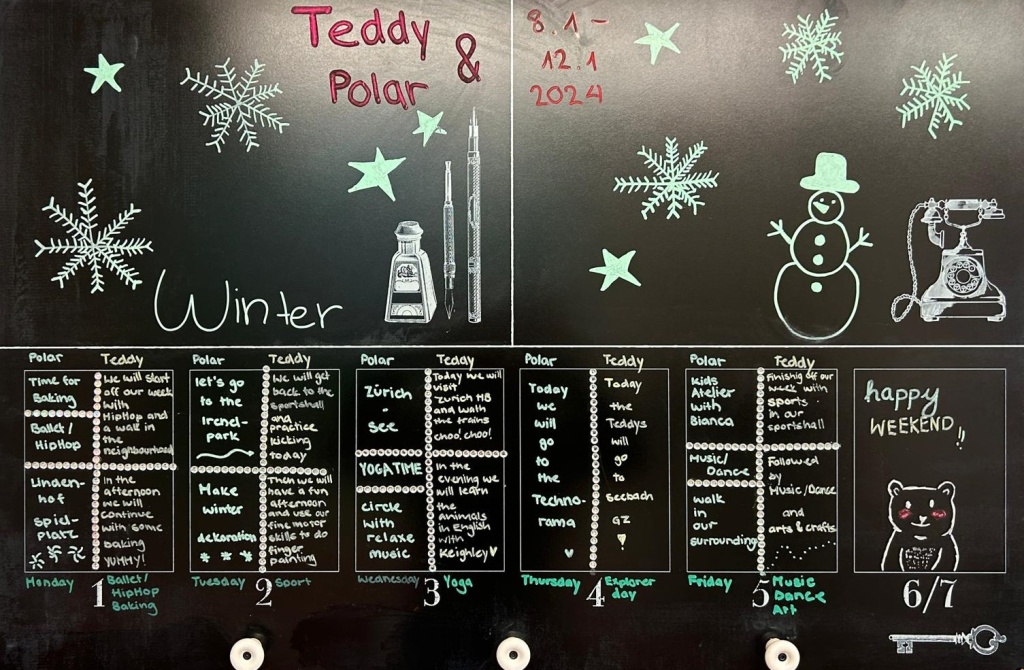 Teddy
&
Polar
8.1 -
12.1
2024
Winter
Polar
Time for
Baking
Ballet/
HipHop
Linden-
hof
spiel-
platz
Teddy
We will start
off our week
with
HipHop and
a walk in
the
neighbourhood
In the
afternoon
we will
continue
with some
baking
YUMMY!
Monday
1
Ballet/
HipHop
Baking
Polar
let's go
to the
Irchel-
park
Make
winter
dekoration
Teddy
We will get
back to the
sportshall
and
practice
kicking
today
Then we will
have a fun
afternoon
and use our
fine motor
skills to do
finger
painting
Tuesday
2
Sport
Polar
Zürich
-
see
YOGATIME
circle
with
relaxe
music
Teddy
Today we will
visit
Zurich HB
and watch
the trains
choo! choo!
In the
evening we
will learn
the
animals
in English
with
Keighley♥
Wednesday
3
Yoga
Polar
Today
we
will
go
to
the
Techno-
rama
♥
Teddy
Today
the
Teddys
will
go
to
Seebach
GZ
Thursday
4
Explorer
day
Polar
kids
Atelier
with
Bianca
Music/
Dance
walk
in
our
surrounding
Teddy
Finishig off our
week with
sports
in our
sportshall
Followed
by
Music/Dance
and
arts & crafts
Friday
5
Music
Dance
Art
happy
WEEKEND!!
6/7